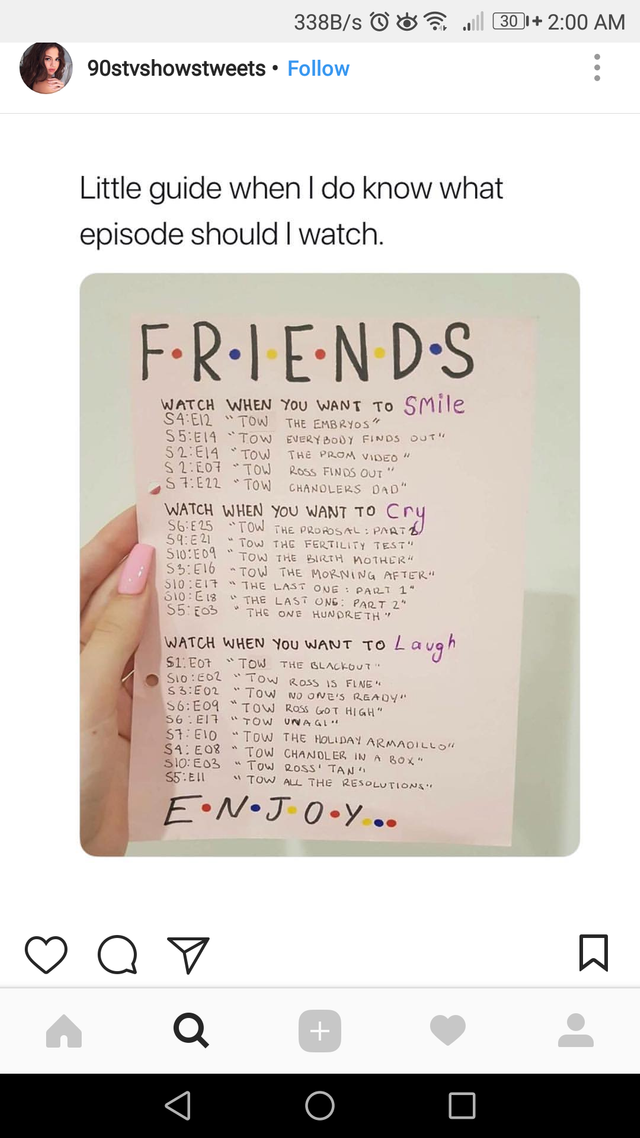 338B/s 30 2:00 AM
90stvshowstweets • Follow
Little guide when I do know what
episode should I watch.
F•R•I•E•N•D•S
WATCH WHEN YOU WANT TO SMile
S4:E12 "TOW THE EMBRYOS"
S5:E14 "TOW EVERYBODY FINDS OUT"
S2:E14 "TOW THE PROM VIDEO"
S2:E07 "TOW ROSS FINDS OUT"
S7:E22 "TOW CHANDLERS DAD"
WATCH WHEN YOU WANT TO Cry
S6:E25 "TOW THE PROPOSAL: PART 2
S9:E21 "TOW THE FERTILITY TEST"
S10:E09 "TOW THE BIRTH MOTHER"
S3:E16 "TOW THE MORNING AFTER"
S10:E17 "THE LAST ONE: PART 1"
S10:E18 "THE LAST ONE: PART 2"
S5:E03 "THE ONE HUNDRETH"
WATCH WHEN YOU WANT TO Laugh
S1:E07 "TOW THE BLACKOUT"
S10:E02 "TOW ROSS IS FINE"
S3:E02 "TOW NO ONE'S READY"
S6:E09 "TOW ROSS GOT HIGH"
S6:E17 "TOW UNAGI"
S7:E10 "TOW THE HOLIDAY ARMADILLO"
S4:E08 "TOW CHANDLER IN A BOX"
S10:E03 "TOW ROSS' TAN"
S5:E11 "TOW ALL THE RESOLUTIONS"
E•N•J•O•Y•••